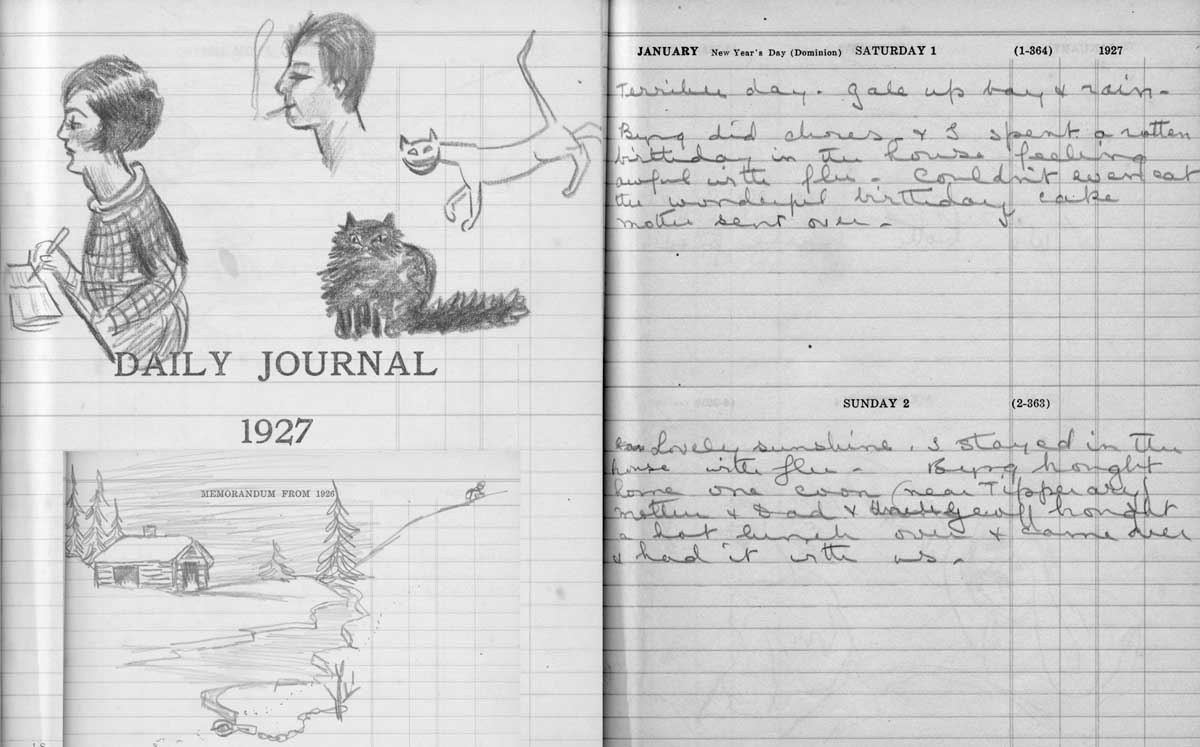 DAILY JOURNAL
1927
MEMORANDUM FROM 1926
JANUARY New Year's Day (Dominion) SATURDAY 1 (1-364) 1927
Terrible day. Gale up bay & rain.
Byng did chores & I spent a rotten
birthday in the house feeling
awful with flu. Couldn't even eat
the wonderful birthday cake
mother sent over.
SUNDAY 2 (2-363)
Lovely sunshine. I stayed in the
house with flu. Byng bought
home one coon (near Tipperary)
mother & Dad & Geoff bought
a hot lunch over & came over
& had it with us.